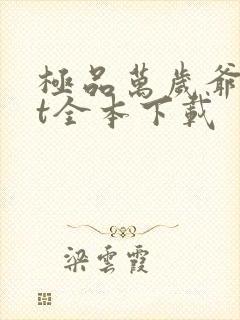 極品萬歲爺
t全本下載
梁雲霞